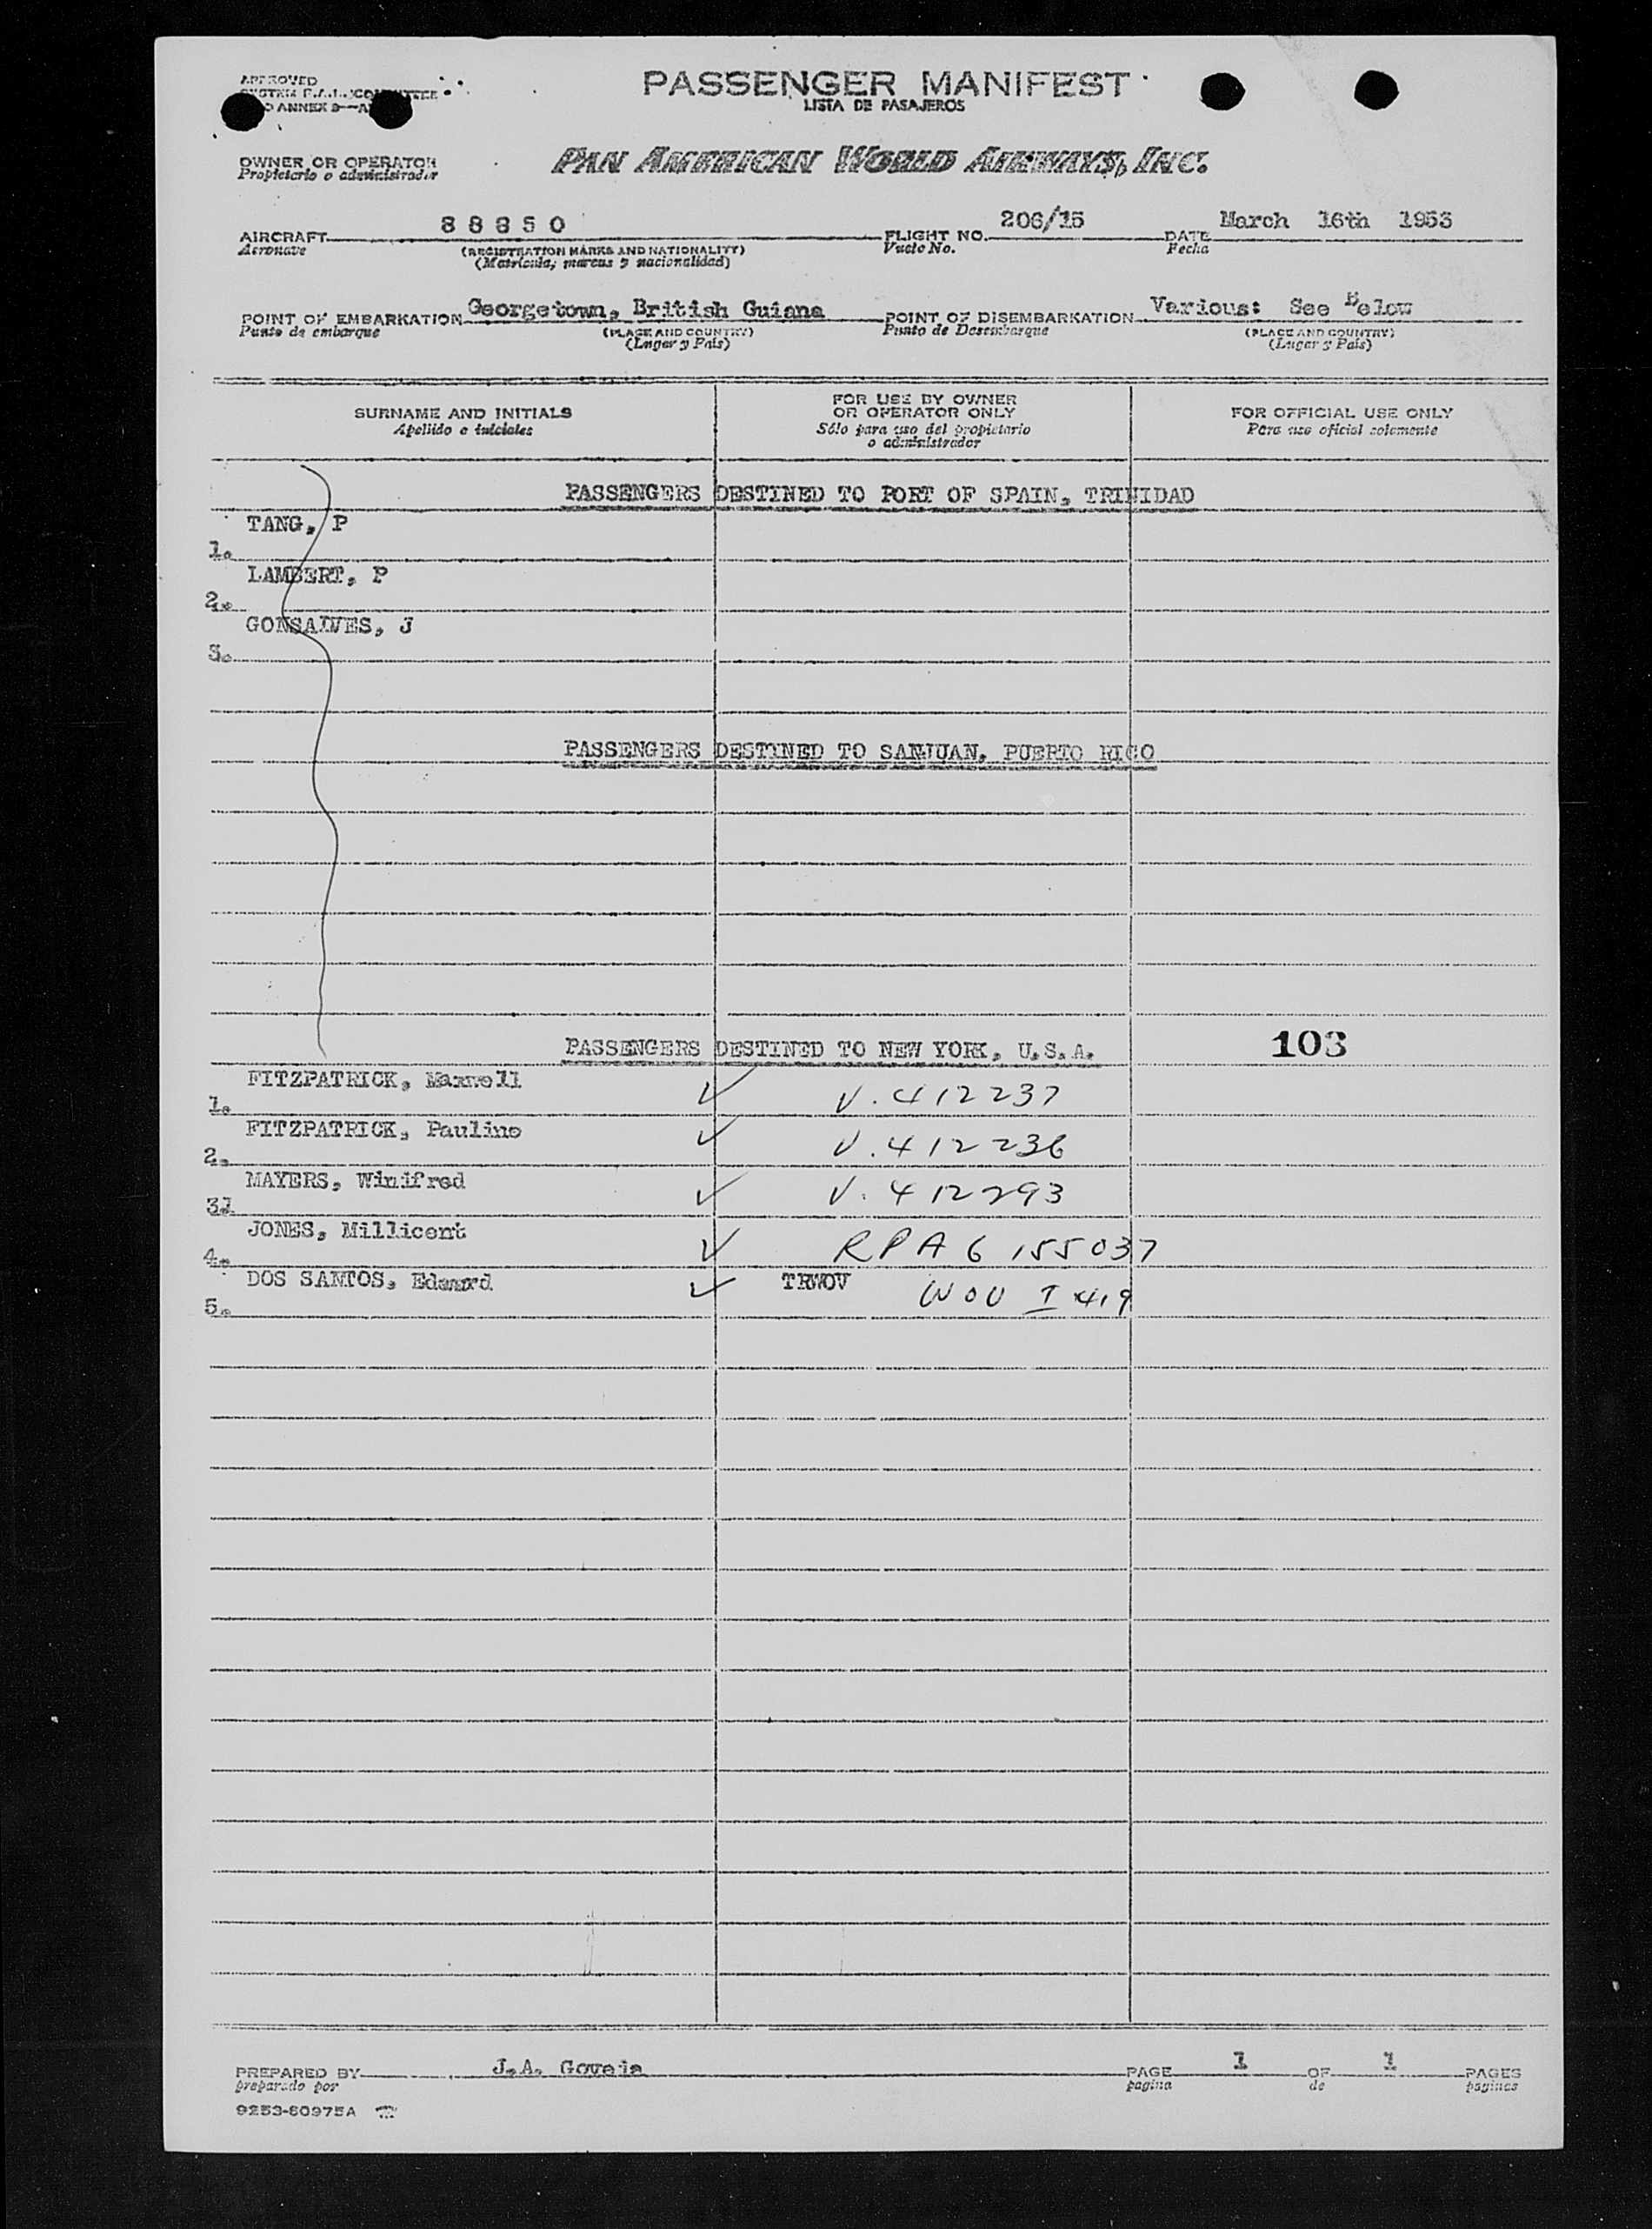 APPROVED
SYSTEM F.A.L. COMMITTEE
ANNEX 9
PASSENGER MANIFEST
LISTA DE PASAJEROS
OWNER OR OPERATOR
Propietario o administrador
PAN AMERICAN WORLD AIRWAYS, INC.
AIRCRAFT 88850 FLIGHT NO. 206/15 DATE March 16th 1953
Aeronave (REGISTRATION MARKS AND NATIONALITY) Vuelo No. Fecha
(Matricula; marcas y nacionalidad)
POINT OF EMBARKATION Georgetown, British Guiana POINT OF DISEMBARKATION Various: See Below
Punto de embarque (PLACE AND COUNTRY) Punto de Desembarque (PLACE AND COUNTRY)
(Lugar y Pais) (Lugar y Pais)
SURNAME AND INITIALS FOR USE BY OWNER OR OPERATOR ONLY FOR OFFICIAL USE ONLY
Apellido e iniciales Sólo para uso del propietario o administrador Para uso oficial solamente
PASSENGERS DESTINED TO PORT OF SPAIN, TRINIDAD
1. TANG, P
2. LAMBERT, P
3. GONSALVES, J
PASSENGERS DESTINED TO SANJUAN, PUERTO RICO
PASSENGERS DESTINED TO NEW YORK, U.S.A. 103
1. FITZPATRICK, Maxwell ✓ V. 412237
2. FITZPATRICK, Pauline ✓ V. 412236
3. MAYERS, Winifred ✓ V. 412293
4. JONES, Millicent ✓ RPA 6 155037
5. DOS SANTOS, Edward ✓ TRWOV WOV I 419
PREPARED BY J.A. Goveia PAGE 1 OF 1 PAGES
preparado por pagina de paginas
9253-60975A